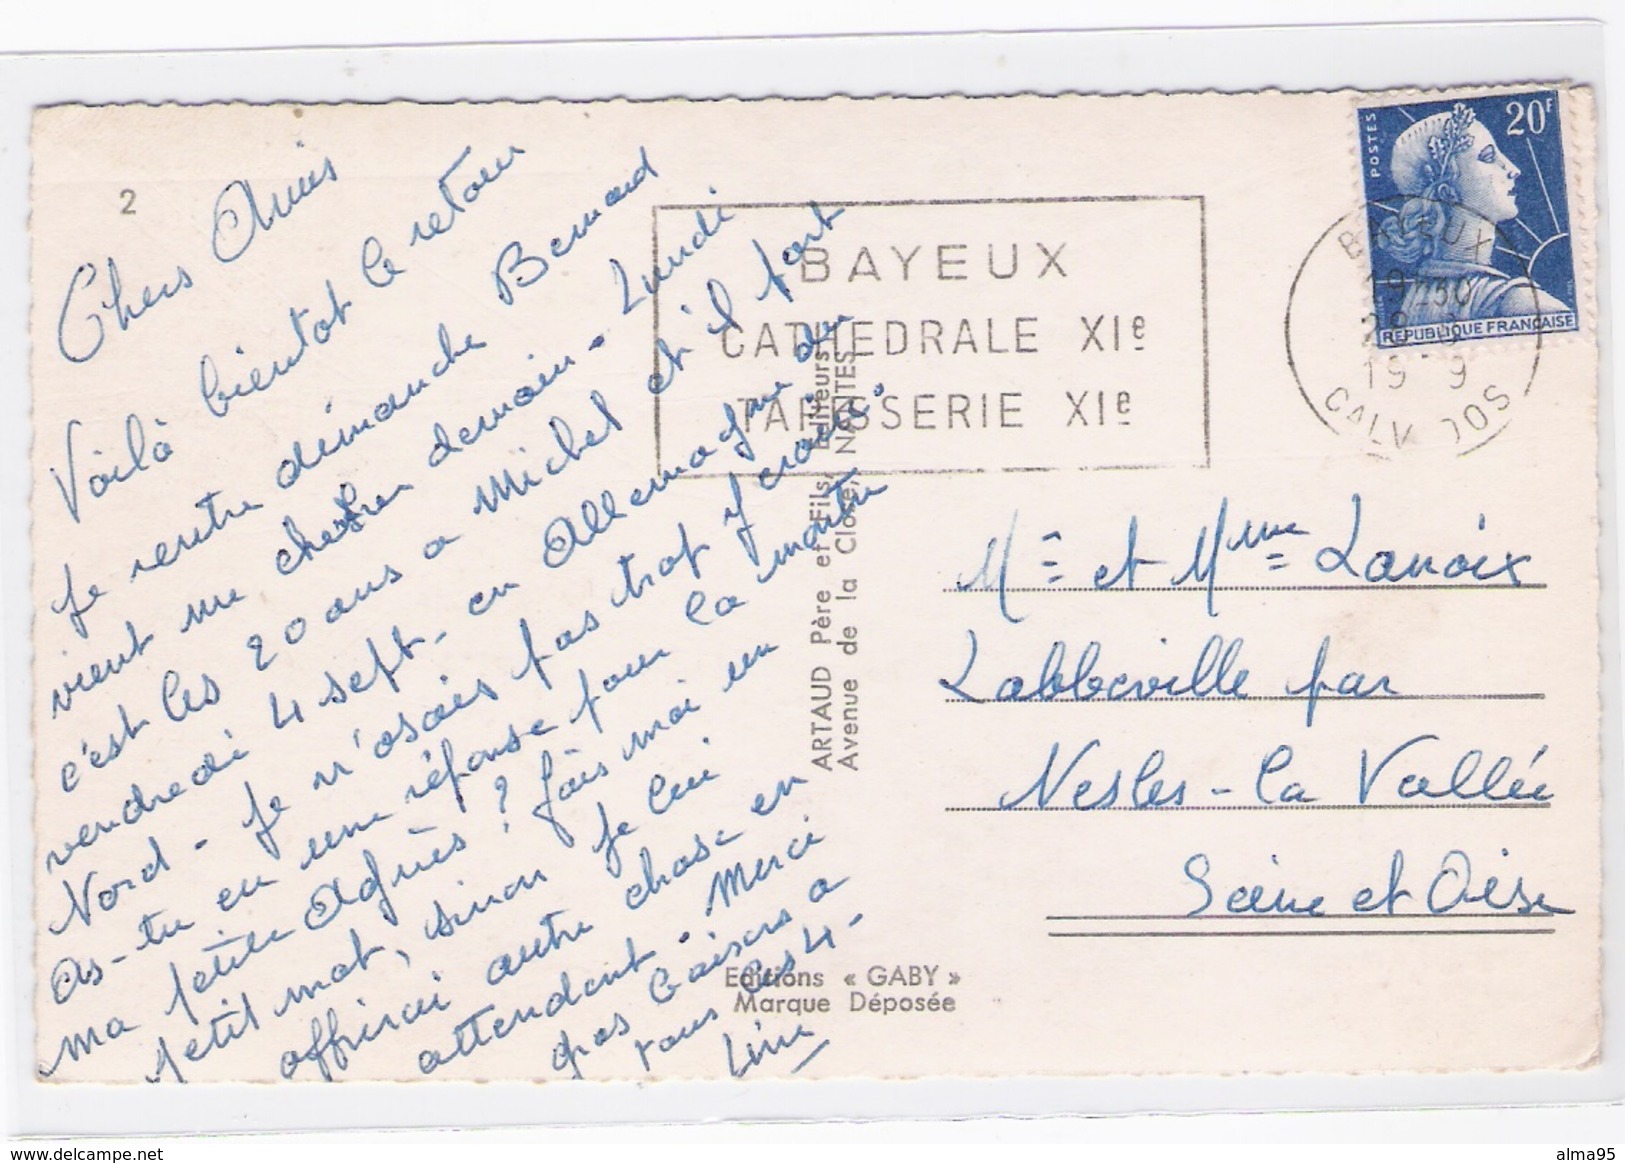 2
Chers Amis
Voilà bientot le retour
je rentre dimanche Bernard
vient me chercher demain - Lundi
c'est les 20 ans a Michel et il part
vendredi 4 sept. en Allemagne du
Nord - je n'osais pas trop y croire.
as-tu eu une réponse pour la montre
ma petite Agnès ? fais moi un
petit mot, sinon je lui
offrirai autre chose en
attendant. Merci
gros baisers a
tous les 4 -
Line
BAYEUX
CATHEDRALE XIe
TAPISSERIE XIe
ARTAUD Père et Fils, Editeurs
Avenue de la Close, NANTES
Editions « GABY »
Marque Déposée
POSTES
20F
REPUBLIQUE FRANÇAISE
BAYEUX
19 30
19 9
CALVADOS
Mr et Mme Lanoix
Labbeville par
Nesles-la Vallée
Seine et Oise
delcampe.net
alma95